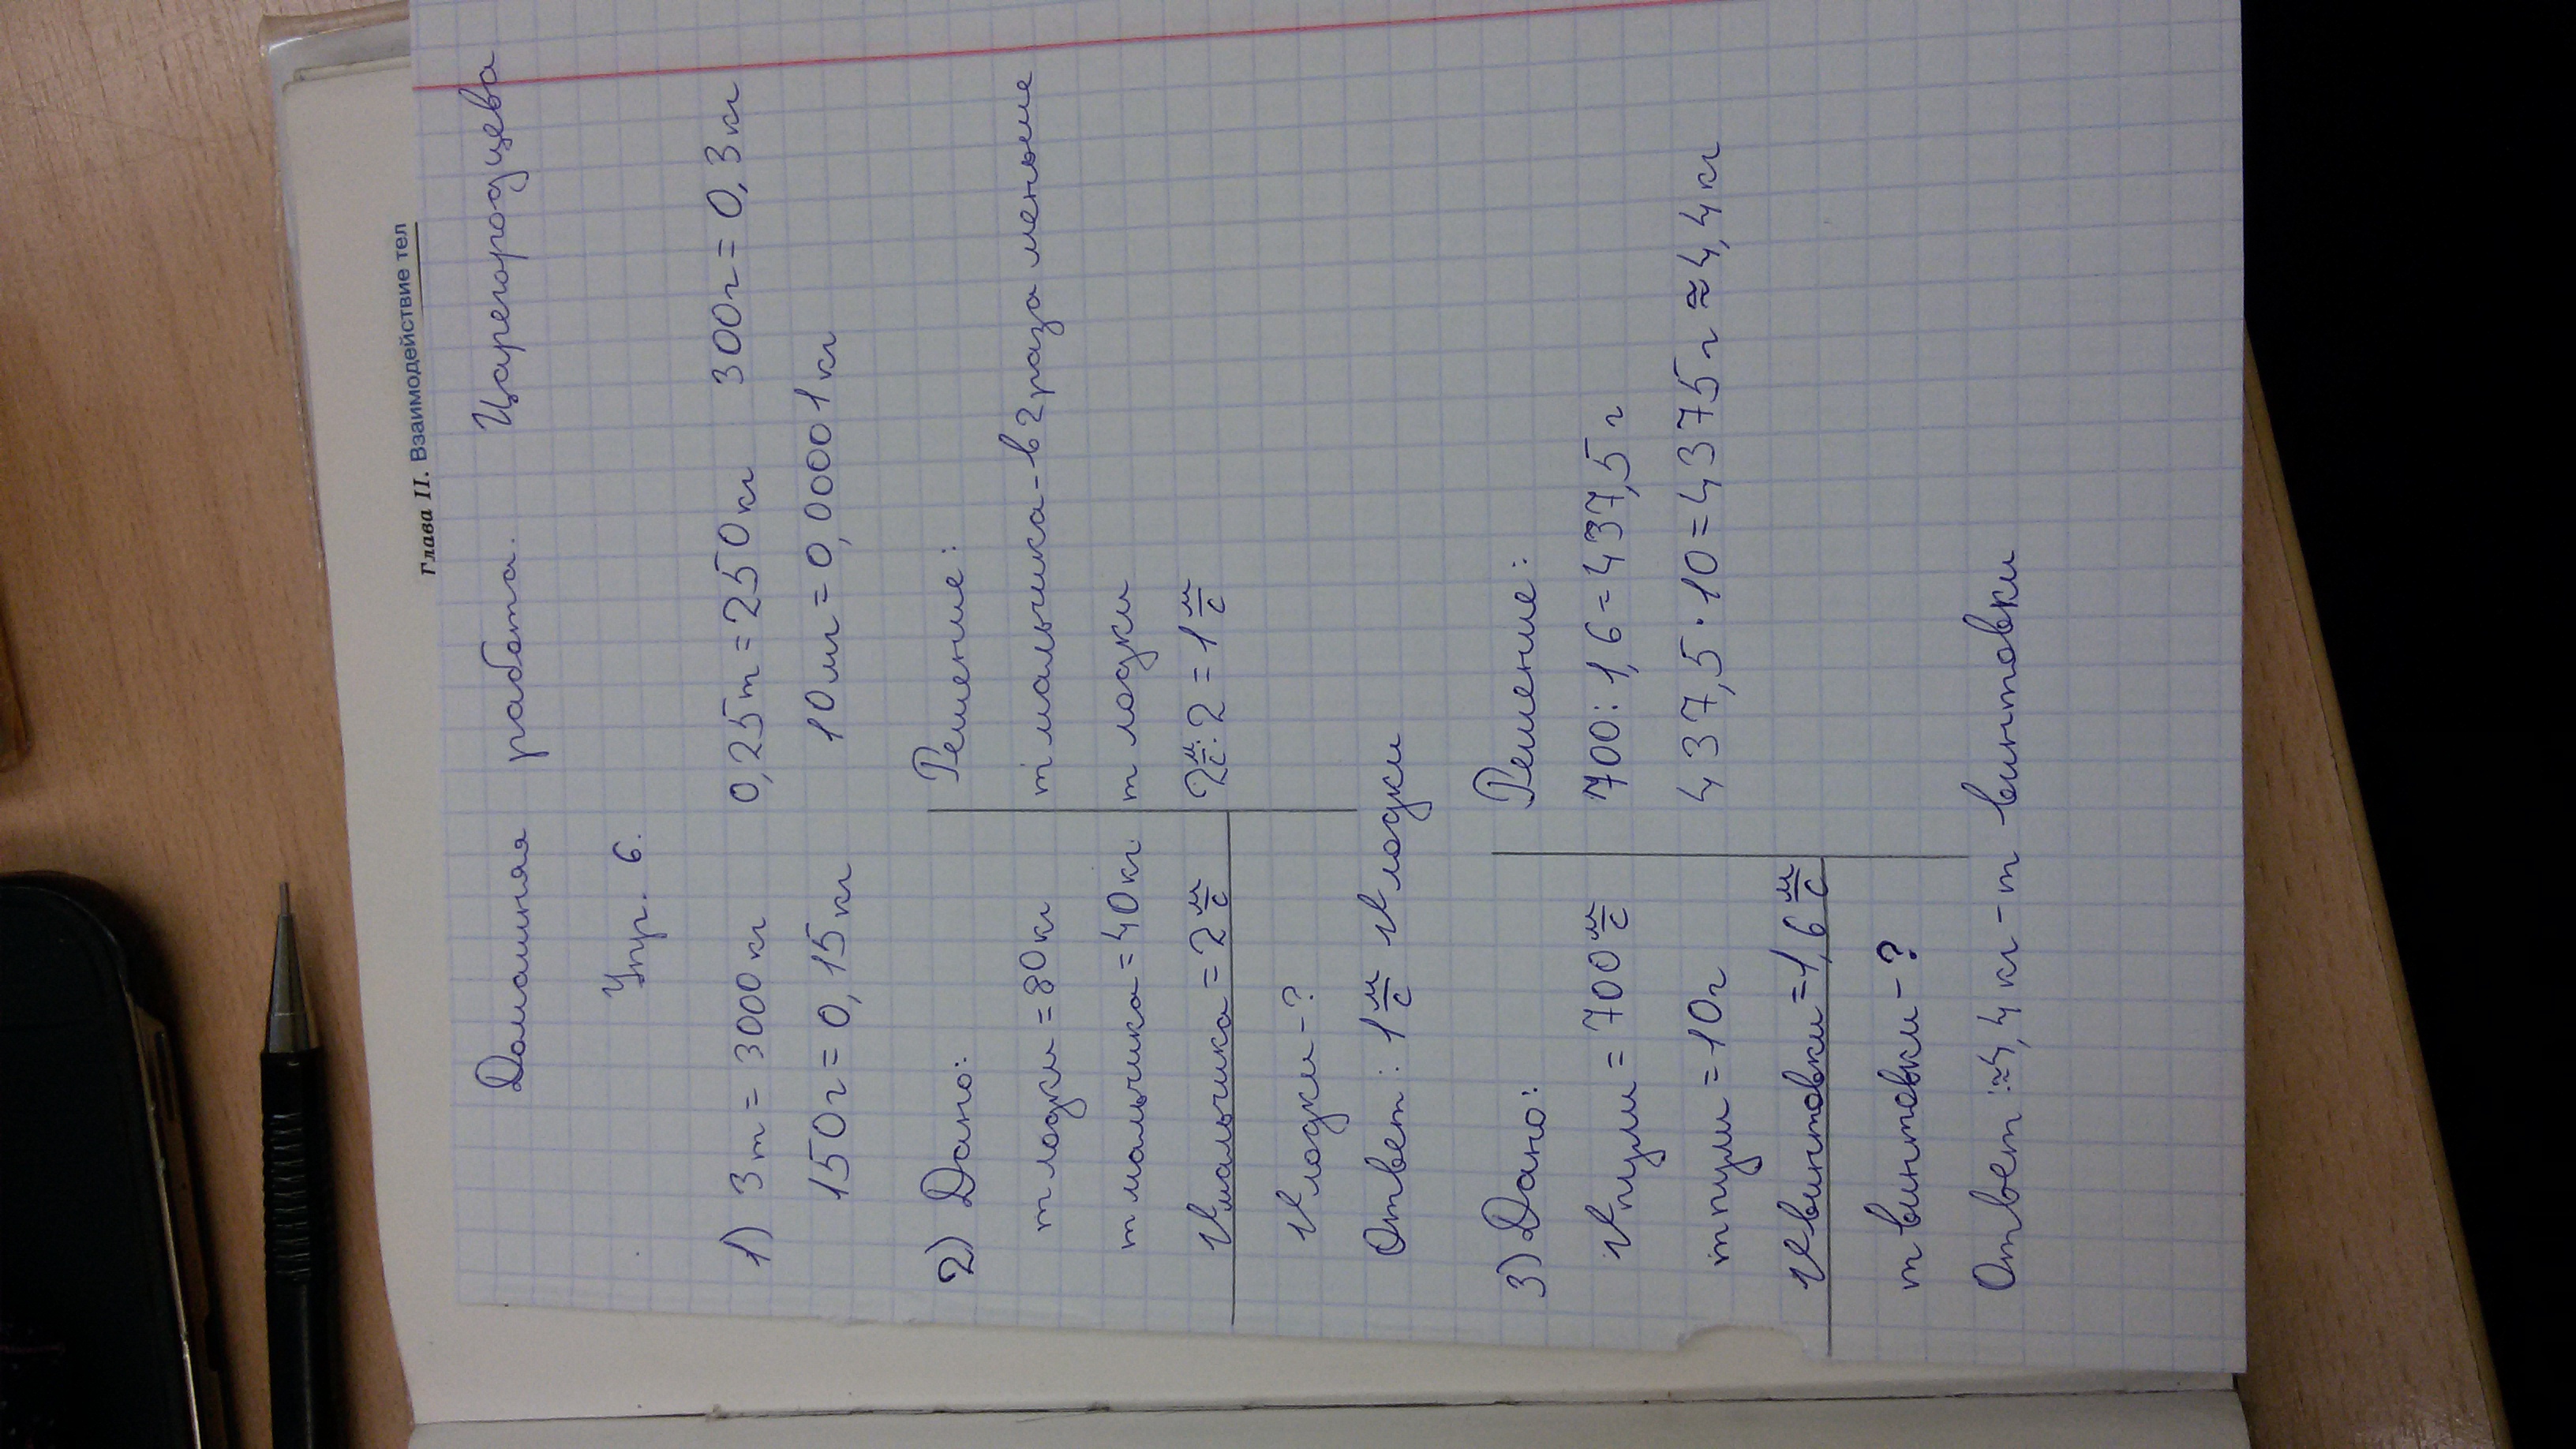 Глава II. Взаимодействие тел
Домашняя работа. Царегородцева
Упр. 6.
1) 3т = 3000кг 0,25т = 250кг 300г = 0,3кг
150г = 0,15кг 10мг = 0,00001кг
2) Дано:
m лодки = 80кг
m мальчика = 40кг.
V мальчика = 2 м/с
V лодки - ?
Решение:
m мальчика - в 2 раза меньше
m лодки
2 м/с : 2 = 1 м/с
Ответ: 1 м/с V лодки
3) Дано:
V пули = 700 м/с
m пули = 10г
V винтовки = 1,6 м/с
m винтовки - ?
Решение:
700 : 1,6 = 437,5 г
437,5 · 10 = 4375 г ≈ 4,4 кг
Ответ: ≈ 4,4 кг - m винтовки